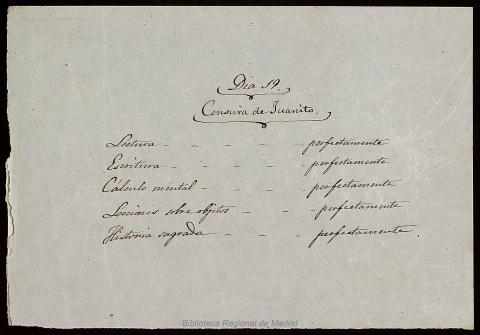 Dia 19.
Censura de Juanito.
Lectura - - - - perfectamente
Escritura - - - - perfectamente
Cálculo mental - - - - perfectamente
Lecciones sobre objetos - - - perfectamente
Historia sagrada - - - perfectamente.
Biblioteca Regional de Madrid